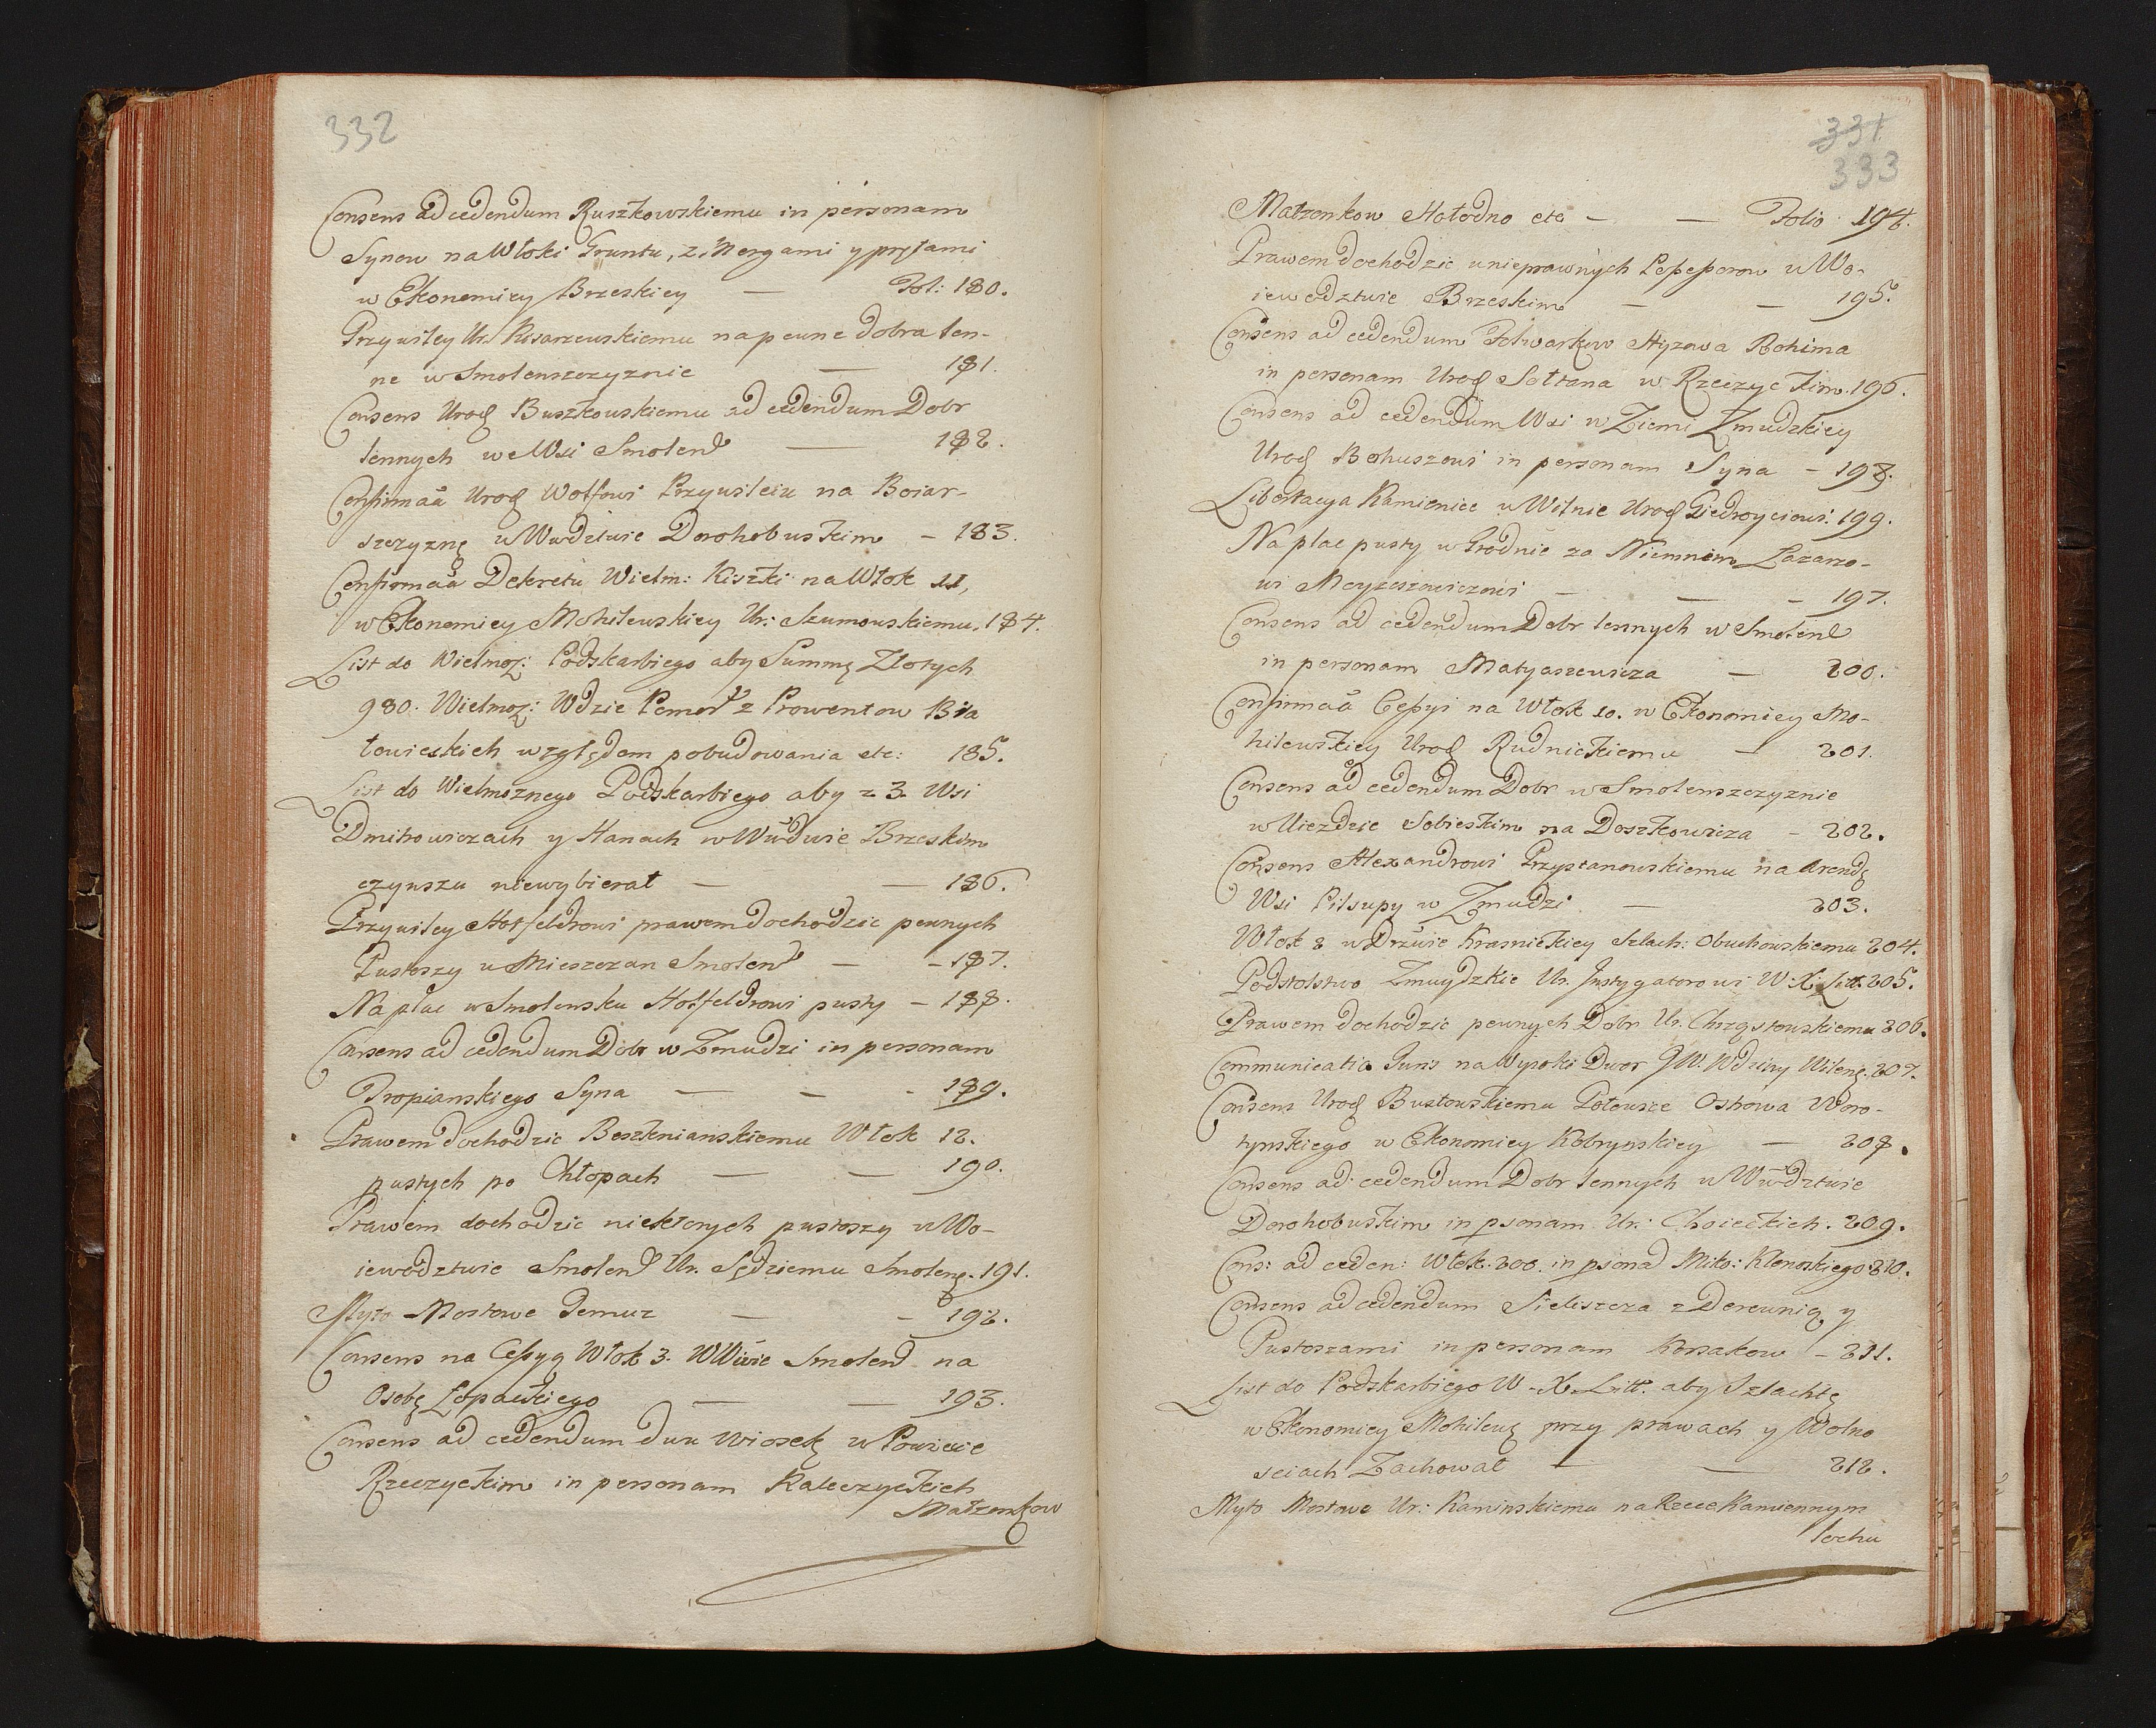 332
Consens ad cedendum Ruszkowskiemu in personam
Synow na Włoki Gruntu, z Morgami y
w Ekonomiey Brzeskiey — Fol: 180.
Przywiley Ur. Kosarzewskiemu na pewne dobra len-
ne w Smolenszczyznie — 181.
Consens Urod Buszkowskiemu ad cedendum Dobr
lennych we Wsi Smolen — 182.
Urod Wolfowi Przywileiu na Boiar-
szczyznę w Wwdztwie Dorohobuskim — 183.
Dekretu Wielm: Kiszki na Włok 11,
w Ekonomiey Mohilewskiey Ur: Szumowskiemu. 184.
List do Wielmoz: Podskarbiego aby Summę Złotych
980. Wielmoz: Wdzie Pomor z Prowentow Bia
łowieskich względem pobudowania etc: 185.
List do Wielmoznego Podskarbiego aby z 3. Wsi
Dmitrowiczach y Hanach w Brzeskim
czynszu niewybierał — — 186.
Przywiley Hotfeldrowi prawem dochodzic pewnych
Pustoszy u Mieszczan Smolen — - 187.
Na plac w Smolensku Hotfeldrowi pusty — 188.
Consens ad cedendum Dobr w Zmudzi in personam
Dropianskiego Syna — — - 189.
Prawem dochodzic Boszknianskiemu Włok 12.
pustych po Chłopach — — 190.
Prawem dochodzic niektorych pustoszy w Wo-
iewodztwie Smolen Ur. Sędziemu Smolenę. 191.
Myto Mostowe Demuz — - 192.
Consens na Cessyą Włok 3. Smolend na
Osobę Łopackiego — — 193.
Consens ad cedendum dwu Wiosek w Powiecie
Rzeczyckim in personam Kaleczyckich
Małzonkow
331
333
Małzonkow Hołodno etc — — Folio 194.
Prawem dochodzic unieprawnych Possessorow w Wo-
iewodztwie Brzeskim — — 195.
Consens ad cedendum Folwarkow Hyzowa Rohima
in personam Urod Sołtana w Rzeczyckim. 196.
Consens ad cedendum Wsi w Ziemi Zmudzkiey
Urod Bohuszowi in personam Syna — 198.
Libertacya Kamienice w Wilnie Urod Giedroyciowi. 199.
Na plac pusty w Grodnie za Niemnem Łazarzo-
wi Moyzeszowiczowi — — - 197.
Consens ad cedendum Dobr lennych w Smolen
in personam Matyaszewicza — 200.
Cessyi na Włok 10. w Ekonomiey Mo-
hilewskiey Urod Rudnickiemu — 201.
Consens ad cedendum Dobr w Smolenszczyznie
w Uiezdzie Sobieskim na Doszkowicza — 202.
Consens Alexandrowi Przystanowskiemu na Arendę
Wsi Pilsupy w Zmudzi — 203.
Włok 2 w Krasnickiey Szlach: Obuchowskiemu 204.
Podstolstwo Zmuydzkie Ur. Instygatorowi W. X. Litt. 205.
Prawem dochodzic pewnych Dobr Ur. Chrząstowskiemu 206.
Communicatio Juris na Wysoki Dwor JW. Wdziny Wileng. 207.
Consens Urod Bustowskiemu Połowice Ostrowa Woro-
tynskiego w Ekonomiey Kobrynskiey — 208.
Consens ad cedendum Dobr lennych w Wwdztwie
Dorohobuskim in psonam Ur: Choieckich. 209.
Cons: ad ceden: Włok. 200. in psonad Miko: Klonoskiego 210.
Consens ad cedendum Sieliszcza z Derewnią y
Pustoszami in personam Korsakow — 211.
List do Podskarbiego W. X. Litt. aby Szlachtę
w Ekonomiey Mohilewę przy prawach y Wolno
sciach Zachował — — 212.
Myto Mostowe Ur: Kaminskiemu na Rzece Kamiennym
łochu